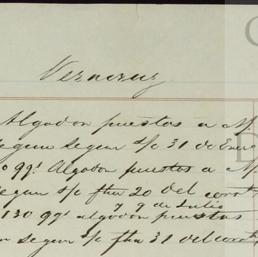 Veracruz
Algodon puestas a
Segun s/c 31 de Ener
0 qqs. Algodon puestas a
s/c fha 20 del corrte
y 9 de Julio
130 qqs algodon puestas
s/c fha 31 del corrte